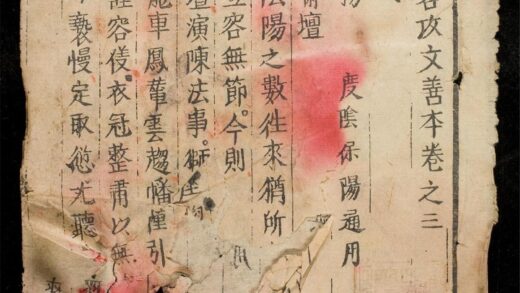 攻文善本卷之三
度陰保陽通用
壇
陰陽之數往來猶所
容無節。今則
壇演陳法事。獅
車鳳輦雲趨幡引
容衣冠整肅以無
褻慢定取愆尤聽